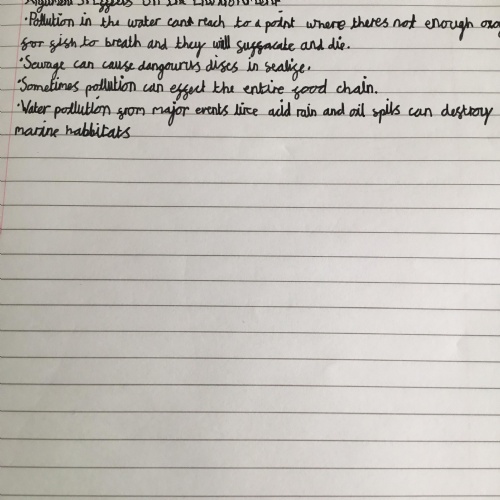 Argument 3: Effects on the Environment
•Pollution in the water cand reach to a point where theres not enough
for fish to breath and they will suffacate and die.
•Sewage can cause dangourus dises in sealife.
•Sometimes pollution can effect the entire food chain.
•Water pollution from major events like acid rain and oil spils can destroy
marine habbitats